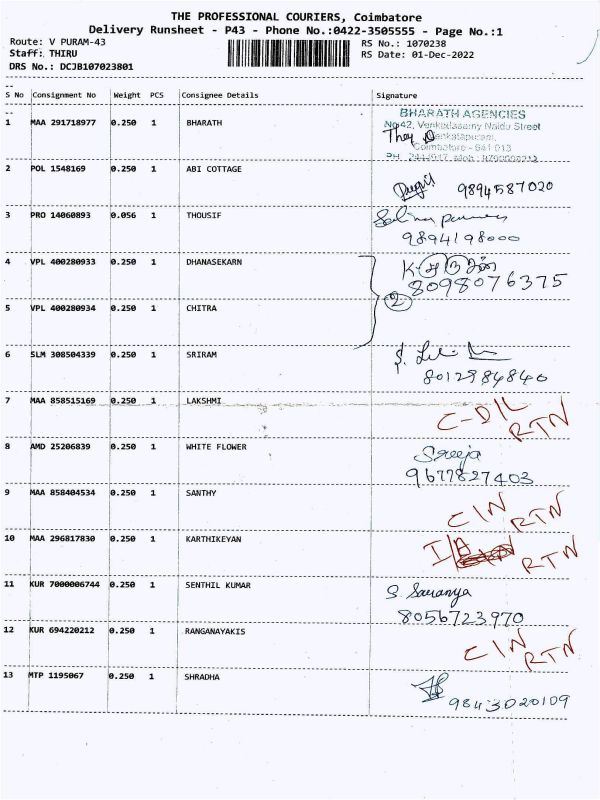 THE PROFESSIONAL COURIERS, Coimbatore
Delivery Runsheet - P43 - Phone No.:0422-3505555 - Page No.:1
Route: V PURAM-43 RS No.: 1070238
Staff: THIRU RS Date: 01-Dec-2022
DRS No.: DCJB107023801
S No Consignment No Weight PCS Consignee Details Signature
1 MAA 291718977 0.250 1 BHARATH
BHARATH AGENCIES
No.42, Venkatasamy Naidu Street
Venkatapuram,
Coimbatore - 641 013
2 POL 1548169 0.250 1 ABI COTTAGE
9894587020
3 PRO 14060893 0.056 1 THOUSIF
9894198000
4 VPL 400280933 0.250 1 DHANASEKARN
8098076375
2
5 VPL 400280934 0.250 1 CHITRA
6 SLM 308504339 0.250 1 SRIRAM
8012984840
7 MAA 858515169 0.250 1 LAKSHMI
C-D/L RTN
8 AMD 25206839 0.250 1 WHITE FLOWER
Sreeja
9677827403
9 MAA 858404534 0.250 1 SANTHY
CIN RTN
10 MAA 296817830 0.250 1 KARTHIKEYAN
I/A RTN
11 KUR 7000006744 0.250 1 SENTHIL KUMAR
S. Saranya
8056723970
12 KUR 694220212 0.250 1 RANGANAYAKIS
CIN RTN
13 MTP 1195067 0.250 1 SHRADHA
9843020109